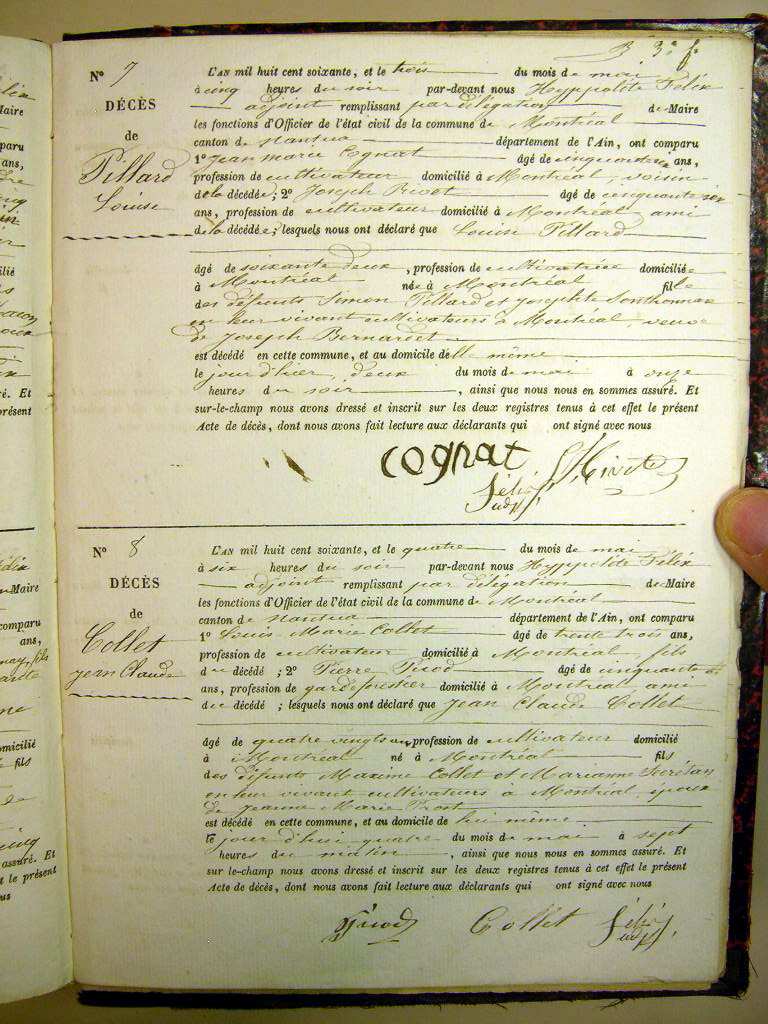 3e f.
No 7
DÉCÈS
de
Pillard
Louise
L'AN mil huit cent soixante, et le trois du mois de mai
à cinq heures du soir par-devant nous Hyppolite Félix
adjoint remplissant par délégation de Maire
les fonctions d'Officier de l'état civil de la commune de Montréal
canton de Nantua département de l'Ain, ont comparu
1o Jean Marie Cognat âgé de cinquante six ans,
profession de cultivateur domicilié à Montréal, voisin
de la décédée; 2o Joseph âgé de cinquante six
ans, profession de cultivateur domicilié à Montréal ami
de la décédée; lesquels nous ont déclaré que Louise Pillard
âgé de soixante deux, profession de cultivatrice domiciliée
à Montréal née à Montréal fille
des défunts Simon Pillard et Josephte Sonthonnax
en leur vivant cultivateurs à Montréal, veuve
de Joseph Bernardet
est décédé en cette commune, et au domicile d'elle même
le jour d'hier, deux du mois de mai à onze
heures du soir, ainsi que nous nous en sommes assuré. Et
sur-le-champ nous avons dressé et inscrit sur les deux registres tenus à cet effet le présent
Acte de décès, dont nous avons fait lecture aux déclarants qui ont signé avec nous
cognat
Félix
adj.
No 8
DÉCÈS
de
Collet
Jean Claude
L'AN mil huit cent soixante, et le quatre du mois de mai
à six heures du soir par-devant nous Hyppolite Félix
adjoint remplissant par délégation de Maire
les fonctions d'Officier de l'état civil de la commune de Montréal
canton de Nantua département de l'Ain, ont comparu
1o Louis Marie Collet âgé de trente trois ans,
profession de cultivateur domicilié à Montréal, fils
du décédé; 2o Pierre Picod âgé de cinquante
ans, profession de garde forestier domicilié à Montréal ami
du décédé; lesquels nous ont déclaré que Jean Claude Collet
âgé de quatre vingts un, profession de cultivateur domicilié
à Montréal né à Montréal fils
des défunts Maxime Collet et Marianne Secrétan
en leur vivant cultivateurs à Montréal, époux
de Jeanne Marie Prost
est décédé en cette commune, et au domicile de lui même
le jour d'hui quatre du mois de mai à sept
heures du matin, ainsi que nous nous en sommes assuré. Et
sur le-champ nous avons dressé et inscrit sur les deux registres tenus à cet effet le présent
Acte de décès, dont nous avons fait lecture aux déclarants qui ont signé avec nous
Picod Collet Félix
adj.